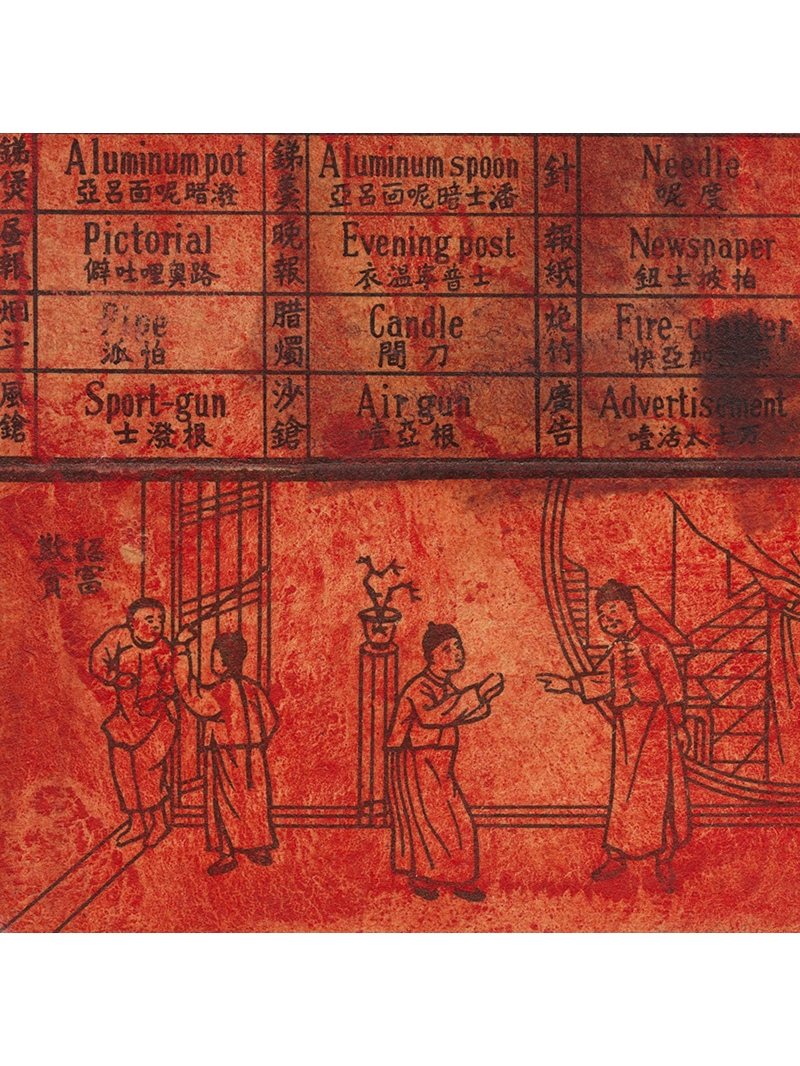 銻煲
Aluminum pot
亞呂面呢暗潑
銻羹
Aluminum spoon
亞呂面呢暗士潘
針
Needle
呢度
昼報
Pictorial
僻吐哩奧路
晚報
Evening post
衣温寧普士
報紙
Newspaper
鈕士披拍
烟斗
Pipe
派怕
腊燭
Candle
間刀
炮竹
Fire-cracker
快亞加
風鎗
Sport-gun
士潑根
沙鎗
Air gun
噎亞根
廣告
Advertisement
噎活太士万
諂富
欺貧